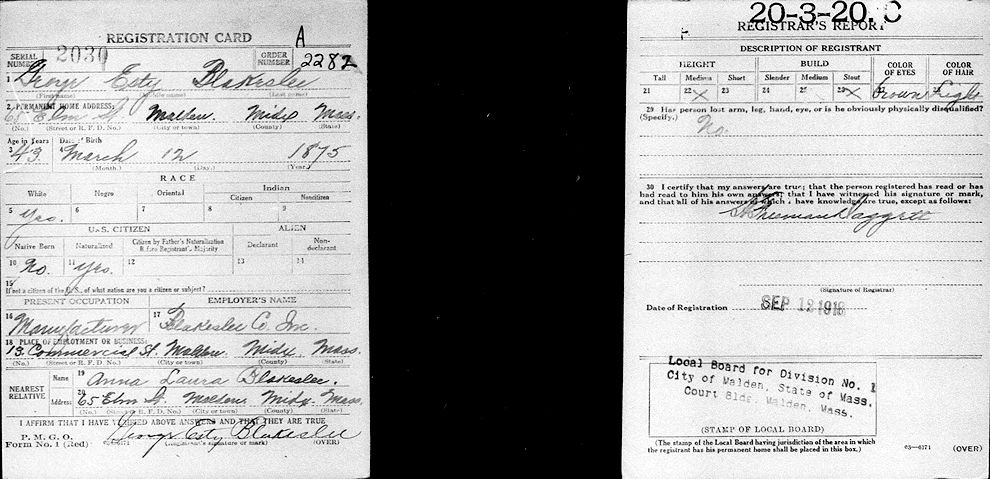 REGISTRATION CARD
A
SERIAL NUMBER 2030 ORDER NUMBER 2282
1 George Esty Blakeslee
(First name) (Middle name) (Last name)
2 PERMANENT HOME ADDRESS:
65 Elm St. Malden Midx Mass.
(No.) (Street or R. F. D. No.) (City or town) (County) (State)
Age in Years Date of Birth
3 43 4 March 12 1875
(Month.) (Day.) (Year.)
RACE
White Negro Oriental Indian
Citizen Noncitizen
5 Yes. 6 7 8 9
U.S. CITIZEN ALIEN
Native Born Naturalized Citizen by Father's Naturalization Before Registrant's Majority Declarant Non-declarant
10 No. 11 Yes. 12 13 14
15
If not a citizen of the U.S., of what nation are you a citizen or subject?
PRESENT OCCUPATION EMPLOYER'S NAME
16 Manufacturer 17 Blakeslee Co. Inc.
18 PLACE OF EMPLOYMENT OR BUSINESS:
13 Commercial St. Malden Midx Mass.
(No.) (Street or R. F. D. No.) (City or town) (County) (State)
NEAREST RELATIVE Name 19 Anna Laura Blakeslee.
Address 20 65 Elm St. Malden Midx Mass.
(No.) (Street or R. F. D. No.) (City or town) (County) (State)
I AFFIRM THAT I HAVE VERIFIED ABOVE ANSWERS AND THAT THEY ARE TRUE
P. M. G. O.
Form No. 1 (Red) George Esty Blakeslee
(Registrant's signature or mark) (OVER)
20-3-20. C
REGISTRAR'S REPORT
DESCRIPTION OF REGISTRANT
HEIGHT BUILD COLOR OF EYES COLOR OF HAIR
Tall Medium Short Slender Medium Stout
21 22 X 23 24 25 26 X 27 Brown 28 Light
29 Has person lost arm, leg, hand, eye, or is he obviously physically disqualified?
(Specify.) No.
30 I certify that my answers are true; that the person registered has read or has
had read to him his own answers; that I have witnessed his signature or mark,
and that all of his answers of which I have knowledge are true, except as follows:
(Signature of Registrar)
Date of Registration SEP 12 1918
Local Board for Division No. 1
City of Malden, State of Mass.
Court Bldg. Malden, Mass.
(STAMP OF LOCAL BOARD)
(The stamp of the Local Board having jurisdiction of the area in which
the registrant has his permanent home shall be placed in this box.)
03—6171 (OVER)